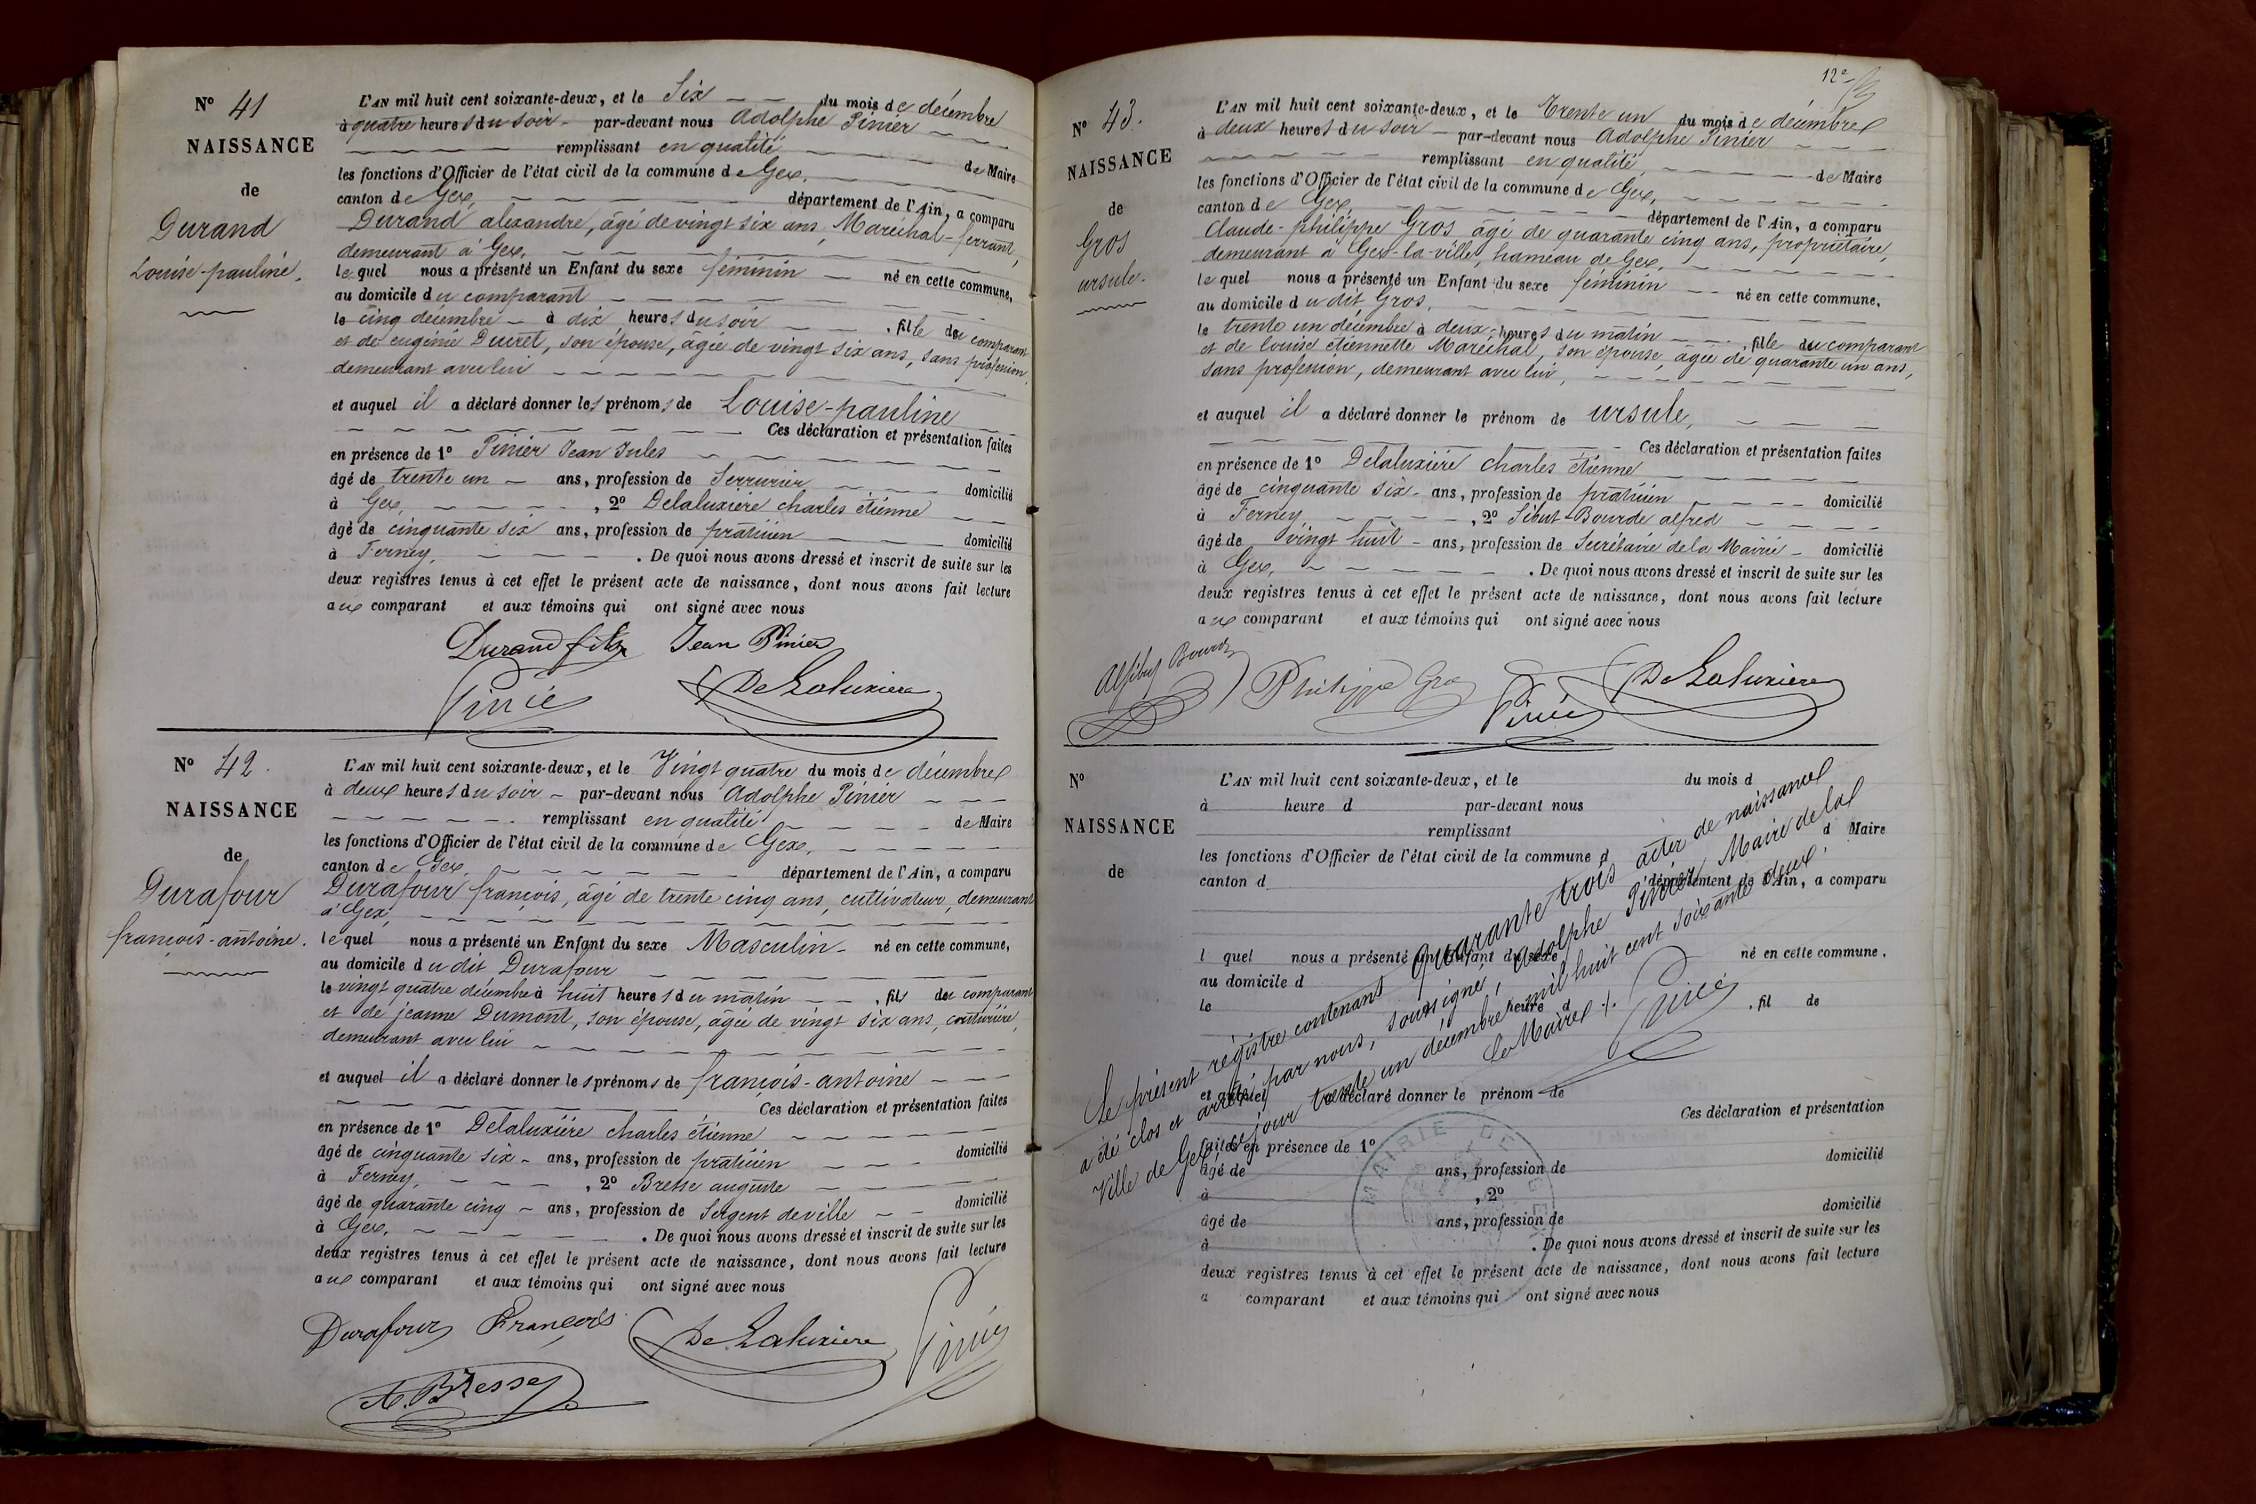 N° 41
NAISSANCE
de
Durand
Louise-pauline.
L'AN mil huit cent soixante-deux, et le Six du mois de décembre
à quatre heures du soir par-devant nous Adolphe Pinier
remplissant en qualité de Maire
les fonctions d'Officier de l'état civil de la commune de Gex,
canton de Gex, département de l'Ain, a comparu
Durand alexandre, âgé de vingt six ans, Maréchal-ferrant,
demeurant à Gex,
lequel nous a présenté un Enfant du sexe féminin né en cette commune,
au domicile du comparant
le cinq décembre à dix heures du soir, fille du comparant
et de eugénie Ducret, son épouse, âgée de vingt six ans, sans profession,
demeurant avec lui
et auquel il a déclaré donner les prénoms de Louise-pauline
Ces déclaration et présentation faites
en présence de 1° Pinier Jean Jules
âgé de trente un ans, profession de Serrurier domicilié
à Gex, , 2° Delaluxière charles étienne
âgé de cinquante six ans, profession de praticien domicilié
à Ferney, . De quoi nous avons dressé et inscrit de suite sur les
deux registres tenus à cet effet le présent acte de naissance, dont nous avons fait lecture
aux comparant et aux témoins qui ont signé avec nous
Durand fils Jean Pinier
Pinier DeLaluxiere
N° 42.
NAISSANCE
de
Durafour
françois-antoine.
L'AN mil huit cent soixante-deux, et le Vingt quatre du mois de décembre
à deux heures du soir par-devant nous Adolphe Pinier
remplissant en qualité de Maire
les fonctions d'Officier de l'état civil de la commune de Gex,
canton de Gex, département de l'Ain, a comparu
Durafour françois, âgé de trente cinq ans, cultivateur, demeurant
à Gex,
lequel nous a présenté un Enfant du sexe Masculin né en cette commune,
au domicile dudit Durafour
le vingt quatre décembre à huit heures du matin, fils du comparant
et de jeanne Dumont, son épouse, âgée de vingt six ans, couturière,
demeurant avec lui
et auquel il a déclaré donner les prénoms de françois-antoine
Ces déclaration et présentation faites
en présence de 1° Delaluxière charles étienne
âgé de cinquante six ans, profession de praticien domicilié
à Ferney, , 2° Bresse auguste
âgé de quarante cinq ans, profession de Sergent de ville domicilié
à Gex, . De quoi nous avons dressé et inscrit de suite sur les
deux registres tenus à cet effet le présent acte de naissance, dont nous avons fait lecture
aux comparant et aux témoins qui ont signé avec nous
Durafour François DeLaluxiere Pinier
A. Bresse
12e
N° 43.
NAISSANCE
de
Gros
ursule.
L'AN mil huit cent soixante-deux, et le Trente un du mois de décembre
à deux heures du soir par-devant nous Adolphe Pinier
remplissant en qualité de Maire
les fonctions d'Officier de l'état civil de la commune de Gex,
canton de Gex, département de l'Ain, a comparu
Claude-philippe Gros âgé de quarante cinq ans, propriétaire,
demeurant à Gex-la-ville, hameau de Gex,
lequel nous a présenté un Enfant du sexe féminin né en cette commune,
au domicile dudit Gros,
le trente un décembre à deux heures du matin, fille du comparant
et de louise étiennette Maréchal, son épouse, âgée de quarante un ans,
sans profession, demeurant avec lui,
et auquel il a déclaré donner le prénom de ursule,
Ces déclaration et présentation faites
en présence de 1° Delaluxière charles étienne
âgé de cinquante six ans, profession de praticien domicilié
à Ferney , 2° Sibut-Bourde alfred
âgé de vingt huit ans, profession de Secrétaire de la Mairie domicilié
à Gex, . De quoi nous avons dressé et inscrit de suite sur les
deux registres tenus à cet effet le présent acte de naissance, dont nous avons fait lecture
aux comparant et aux témoins qui ont signé avec nous
Philippe Gros Pinier DeLaluxiere
N°
NAISSANCE
de
L'AN mil huit cent soixante-deux, et le du mois d
à heure d par-devant nous
remplissant d Maire
les fonctions d'Officier de l'état civil de la commune d
canton d département de l'Ain, a comparu
l quel nous a présenté un Enfant du sexe né en cette commune,
au domicile d
le heure d , fil de
et auquel a déclaré donner le prénom de
Ces déclaration et présentation
faites en présence de 1°
âgé de ans, profession de domicilié
à , 2°
âgé de ans, profession de domicilié
à . De quoi nous avons dressé et inscrit de suite sur les
deux registres tenus à cet effet le présent acte de naissance, dont nous avons fait lecture
a comparant et aux témoins qui ont signé avec nous
Le présent registre contenant quarante trois actes de naissance
a été clos et arrêté par nous, soussigné, Adolphe Pinier, Maire de la
Ville de Gex, ce jour trente un décembre mil huit cent soixante deux.
Le Maire
Pinier
MAIRIE DE GEX